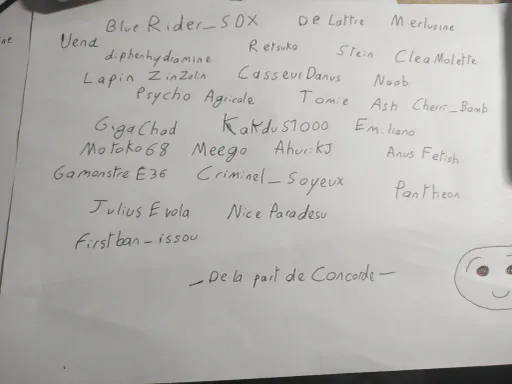 BlueRider_SDX De Lattre Merlusine
ne Vend
diphenhydramine Retsuko Stein CleaMolette
Lapin ZinZolin CasseurDanus Noob
Psycho Agricole Tomie Ash Cherri_Bomb
GigaChad KakduS1000 Emiliano
Motoko68 Meego AhurikJ Anus Fetish
Gamonstre E36 Criminel_Soyeux Pantheon
Julius Evola Nice Paradesu
Firstban_issou
_De la part de Concorde_